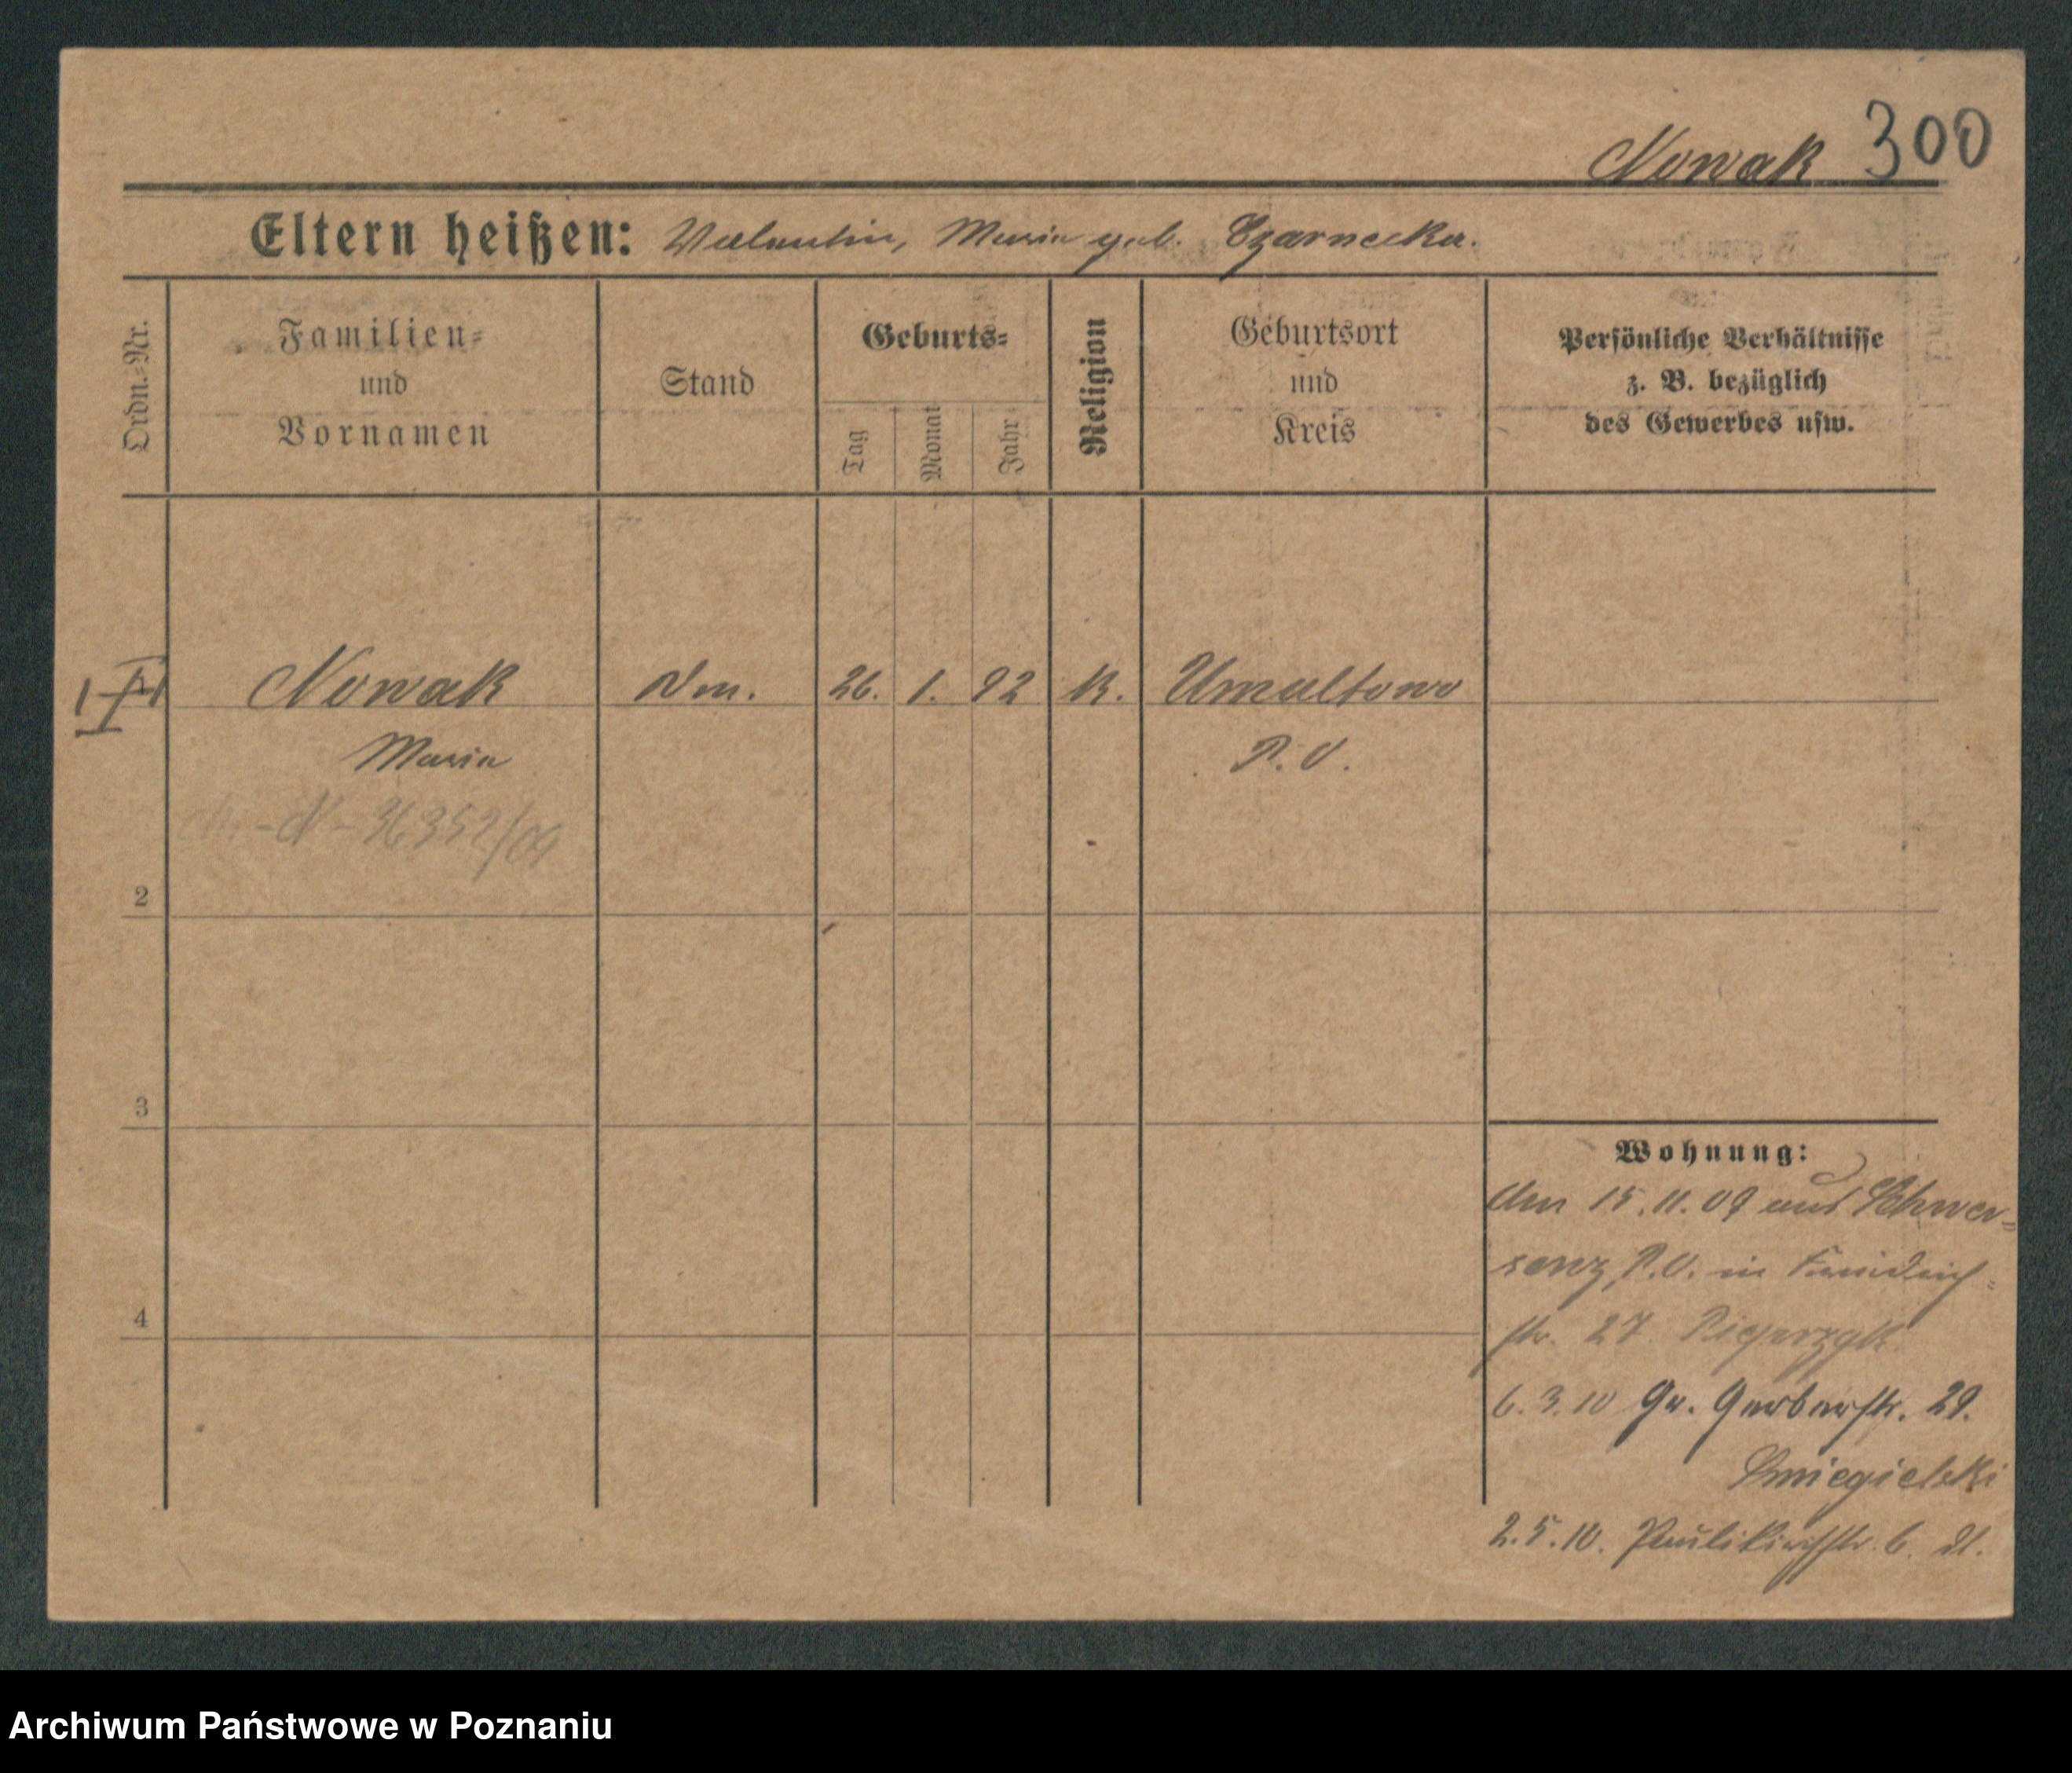 Nowak 300
Eltern heißen: Valentin, Maria geb. Czarnecka.
Ordn.-Nr.
Familien-
und
Vornamen
Stand
Geburts-
Tag
Monat
Jahr
Religion
Geburtsort
und
Kreis
Persönliche Verhältnisse
z. B. bezüglich
des Gewerbes usw.
Nowak
26. 1. 92 K. Umultowo
Maria
P. O.
36352/09
2
3
4
Wohnung:
den 15.11.09 aus Schwer-
senz, P.O. in Friedrich-
str. 27
6.3.10 Gr. Gerberstr. 29.
Smiegielski
2.5.10. Paulikirchstr. 6.
Archiwum Państwowe w Poznaniu